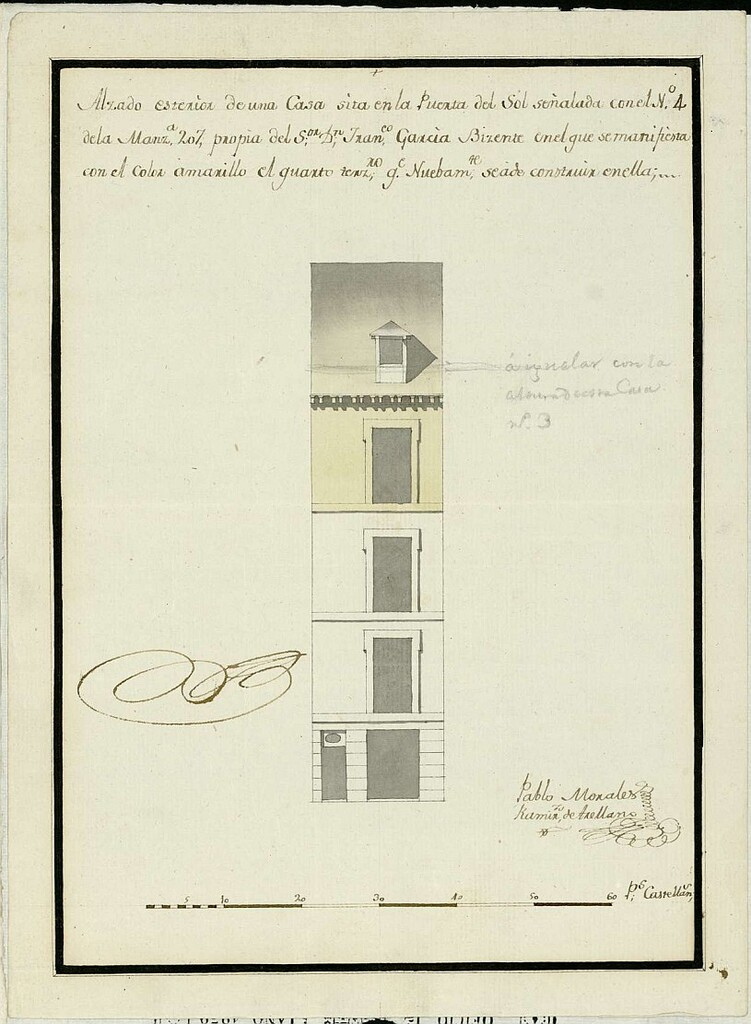 Alzado esterior de una Casa sita en la Puerta del Sol señalada con el N.º 4
de la Manz.ª 207, propia del S.ºʳ D.ⁿ Fran.ᶜᵒ Garcia Bizente en el que se manifiesta
con el Color amarillo el quarto terz.ʳᵒ q.ᵉ Nuebam.ᵗᵉ se a de construir en ella;
á igualar con la
altura de esta Casa
nº. 3
Pablo Morales
Ramir.ᶻ de Arellano
5 10 20 30 40 50 60 P.ˢ Castellan.ˢ